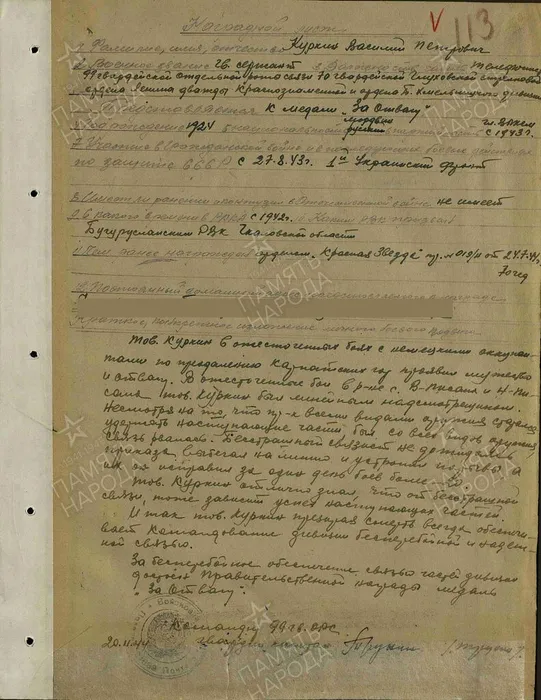 113
Наградной лист
1. Фамилия, имя, отчество Куркин Василий Петрович
2. Военное звание гв. сержант 3. телефонист
99 гвардейской отдельной роты связи 70 гвардейской Глуховской стрелковой
ордена Ленина дважды Краснознаменной и ордена Б. Хмельницкого дивизии
Представляется к медали "За Отвагу"
мордвин
1924 русский с 1943г.
7. Участие в гражданской войне и последующих боевых действиях
по защите СССР с 27.8.43г. 1й Украинский фронт
8. Имеет ли ранения и контузии в Отечественной войне не имеет
9. С какого времени в РККА с 1942г. Каким РВК призван
Бугурусланским РВК Чкаловской области
11. Чем ранее награжден орденом "Красная Звезда" пр. N 019/н от 24.7.44г.
70 гсд
12. Постоянный домашний
Краткое, конкретное изложение личного боевого подвига
Тов. Куркин в ожесточенных боях с немецкими оккупан-
тами по преодолению Карпатских гор проявил мужество
и отвагу. В ожесточенные бои в р-не с. В-Писана и Н-Пи-
сана тов. Куркин был линейным надсмотрщиком.
Несмотря на то, что пр-к всеми видами оружия
удержать наступающие части бил со всех видов оружия
связь рвалась. Бесстрашный связист не дожидаясь
приказа выбегал на линию и устранял порывы а
их он исправил за один день боев более
Тов. Куркин отлично знал, что от бесстрашной
связи, тоже зависит успех наступающих частей
И так тов. Куркин презирая смерть всегда обеспечи-
вает командование дивизии бесперебойной и надеж-
ной связью.
За бесперебойное обеспечение связью частей дивизии
достоин Правительственной награды медаль
"За Отвагу".
Командир 99 гв. ОРС
гвардии капитан
20.11.44
ПАМЯТЬ
НАРОДА